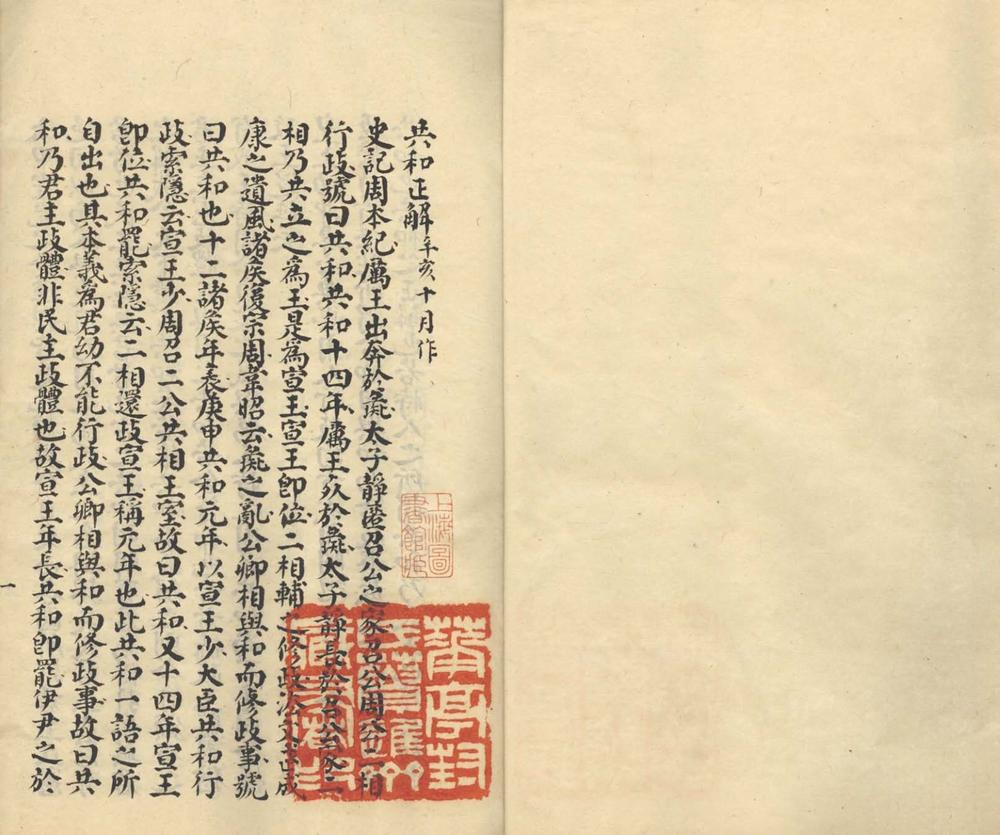 共和正解辛亥十月作
史記周本紀厲王出奔於彘太子靜匿召公之家召公周公二相
行政號曰共和共和十四年厲王死於彘太子靜長於召公家二
相乃共立之為王是為宣王宣王即位二相輔之修政法文武成
康之遺風諸侯復宗周韋昭云彘之亂公卿相與和而修政事號
曰共和也十二諸侯年表庚申共和元年以宣王少大臣共和行
政索隱云宣王少周召二公共相王室故曰共和又十四年宣王
即位共和罷索隱云二相還政宣王稱元年也此共和一語之所
自出也其本義為君幼不能行政公卿相與和而修政事故曰共
和乃君主政體非民主政體也故宣王年長共和即罷伊尹之於
一
上海圖
書館藏
華亭封
氏簣進
齋藏書印